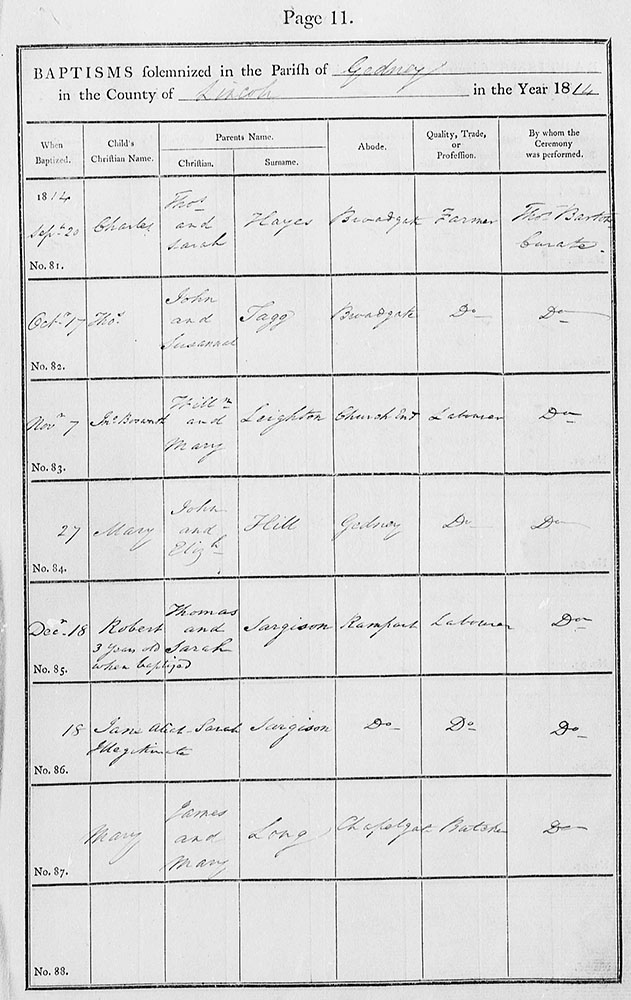 Page 11.
BAPTISMS solemnized in the Parish of Gedney
in the County of Lincoln in the Year 1814
When Baptized. Child's Christian Name. Parents Name. Abode. Quality, Trade, or Profession. By whom the Ceremony was performed.
Christian. Surname.
1814
Septr 20 Charles Thos and Sarah Hayes Broadgate Farmer Thos Barton Curate.
No. 81.
Octr 17 Thos. John and Susannah Tagg Broadgate Do Do
No. 82.
Novr 7 Jno Willm and Mary Leighton Church End Labourer Do
No. 83.
27 Mary John and Elizh Hill Gedney Do Do
No. 84.
Decr 18 Robert 3 Years old when baptized Thomas and Sarah Sargison Rampart Labourer Do
No. 85.
18 Jane Illegitimate Sarah Sargison Do Do Do
No. 86.
Mary James and Mary Long Chapelgate Butcher Do
No. 87.
No. 88.